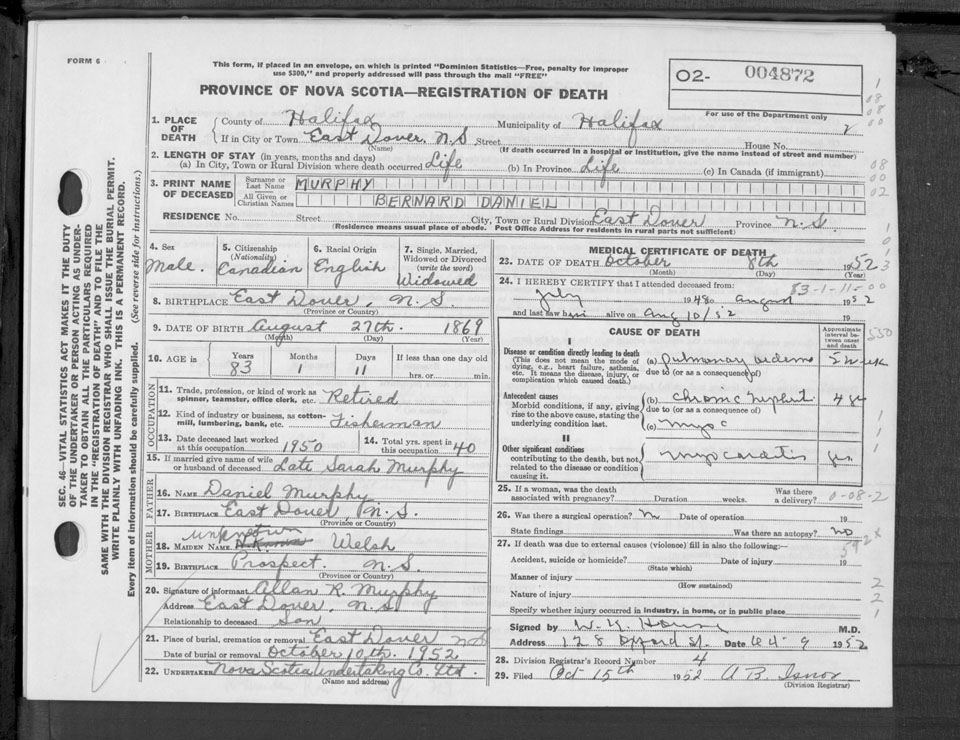 FORM 6
This form, if placed in an envelope, on which is printed "Dominion Statistics—Free, penalty for improper
use $300," and properly addressed will pass through the mail "FREE"
PROVINCE OF NOVA SCOTIA—REGISTRATION OF DEATH
02- 004872
For use of the Department only
1. PLACE OF DEATH
County of Halifax Municipality of Halifax
If in City or Town East Dover, N.S. Street House No.
(Name) (If death occurred in a hospital or institution, give the name instead of street and number)
2. LENGTH OF STAY (in years, months and days)
(a) In City, Town or Rural Division where death occurred Life (b) In Province Life (c) In Canada (if immigrant)
3. PRINT NAME OF DECEASED
Surname or Last Name MURPHY
All Given or Christian Names BERNARD DANIEL
RESIDENCE No. Street City, Town or Rural Division East Dover Province N.S.
(Residence means usual place of abode. Post Office Address for residents in rural parts not sufficient)
4. Sex
Male.
5. Citizenship (Nationality)
Canadian
6. Racial Origin
English
7. Single, Married, Widowed or Divorced (write the word)
Widowed
8. BIRTHPLACE East Dover, N.S.
(Province or Country)
9. DATE OF BIRTH August 27th. 1869
(Month) (Day) (Year)
10. AGE in Years Months Days If less than one day old
83 1 11 hrs. or min.
OCCUPATION
11. Trade, profession, or kind of work as spinner, teamster, office clerk, etc. Retired
12. Kind of industry or business, as cotton-mill, lumbering, bank, etc. Fisherman
13. Date deceased last worked at this occupation 1950
14. Total yrs. spent in this occupation 40
15. If married give name of wife or husband of deceased Late Sarah Murphy
FATHER
16. NAME Daniel Murphy
17. BIRTHPLACE East Dover, N.S.
(Province or Country)
MOTHER
unknown
18. MAIDEN NAME Welsh
19. BIRTHPLACE Prospect. N.S.
(Province or Country)
20. Signature of informant Allan R. Murphy
Address East Dover, N.S.
Relationship to deceased Son
21. Place of burial, cremation or removal East Dover N.S.
Date of burial or removal October 10th. 1952
22. UNDERTAKER Nova Scotia Undertaking Co. Ltd.
(Name and address)
MEDICAL CERTIFICATE OF DEATH
23. DATE OF DEATH October 8th 1952
(Month) (Day) (Year)
24. I HEREBY CERTIFY that I attended deceased from: 83-1-11-00
July 1948 to August 1952
and last saw him alive on Aug 10/52
CAUSE OF DEATH
Approximate interval between onset and death
I
Disease or condition directly leading to death
(This does not mean the mode of dying, e.g., heart failure, asthenia, etc. It means the disease, injury, or complication which caused death.)
(a) Pulmonary oedema
due to (or as a consequence of)
Antecedent causes
Morbid conditions, if any, giving rise to the above cause, stating the underlying condition last.
(b) Chronic
due to (or as a consequence of)
(c)
II
Other significant conditions
contributing to the death, but not related to the disease or condition causing it.
Myocarditis
25. If a woman, was the death associated with pregnancy? Duration weeks. Was there a delivery? 0-08-2
26. Was there a surgical operation? Date of operation 19
State findings Was there an autopsy? no
27. If death was due to external causes (violence) fill in also the following:—
Accident, suicide or homicide? Date of injury 19
(State which)
Manner of injury
(How sustained)
Nature of injury
Specify whether injury occurred in industry, in home, or in public place
Signed by M.D.
Address 128 Oxford St. Date Oct 9 1952
28. Division Registrar's Record Number 4
29. Filed Oct 15th 1952 A B. Isnor
(Division Registrar)
SEC. 46—VITAL STATISTICS ACT MAKES IT THE DUTY
OF THE UNDERTAKER OR PERSON ACTING AS UNDER-
TAKER TO OBTAIN ALL THE PARTICULARS REQUIRED
IN THE "REGISTRATION OF DEATH" AND TO FILE THE
SAME WITH THE DIVISION REGISTRAR WHO SHALL ISSUE THE BURIAL PERMIT.
WRITE PLAINLY WITH UNFADING INK. THIS IS A PERMANENT RECORD.
Every item of information should be carefully supplied. (See reverse side for instructions.)